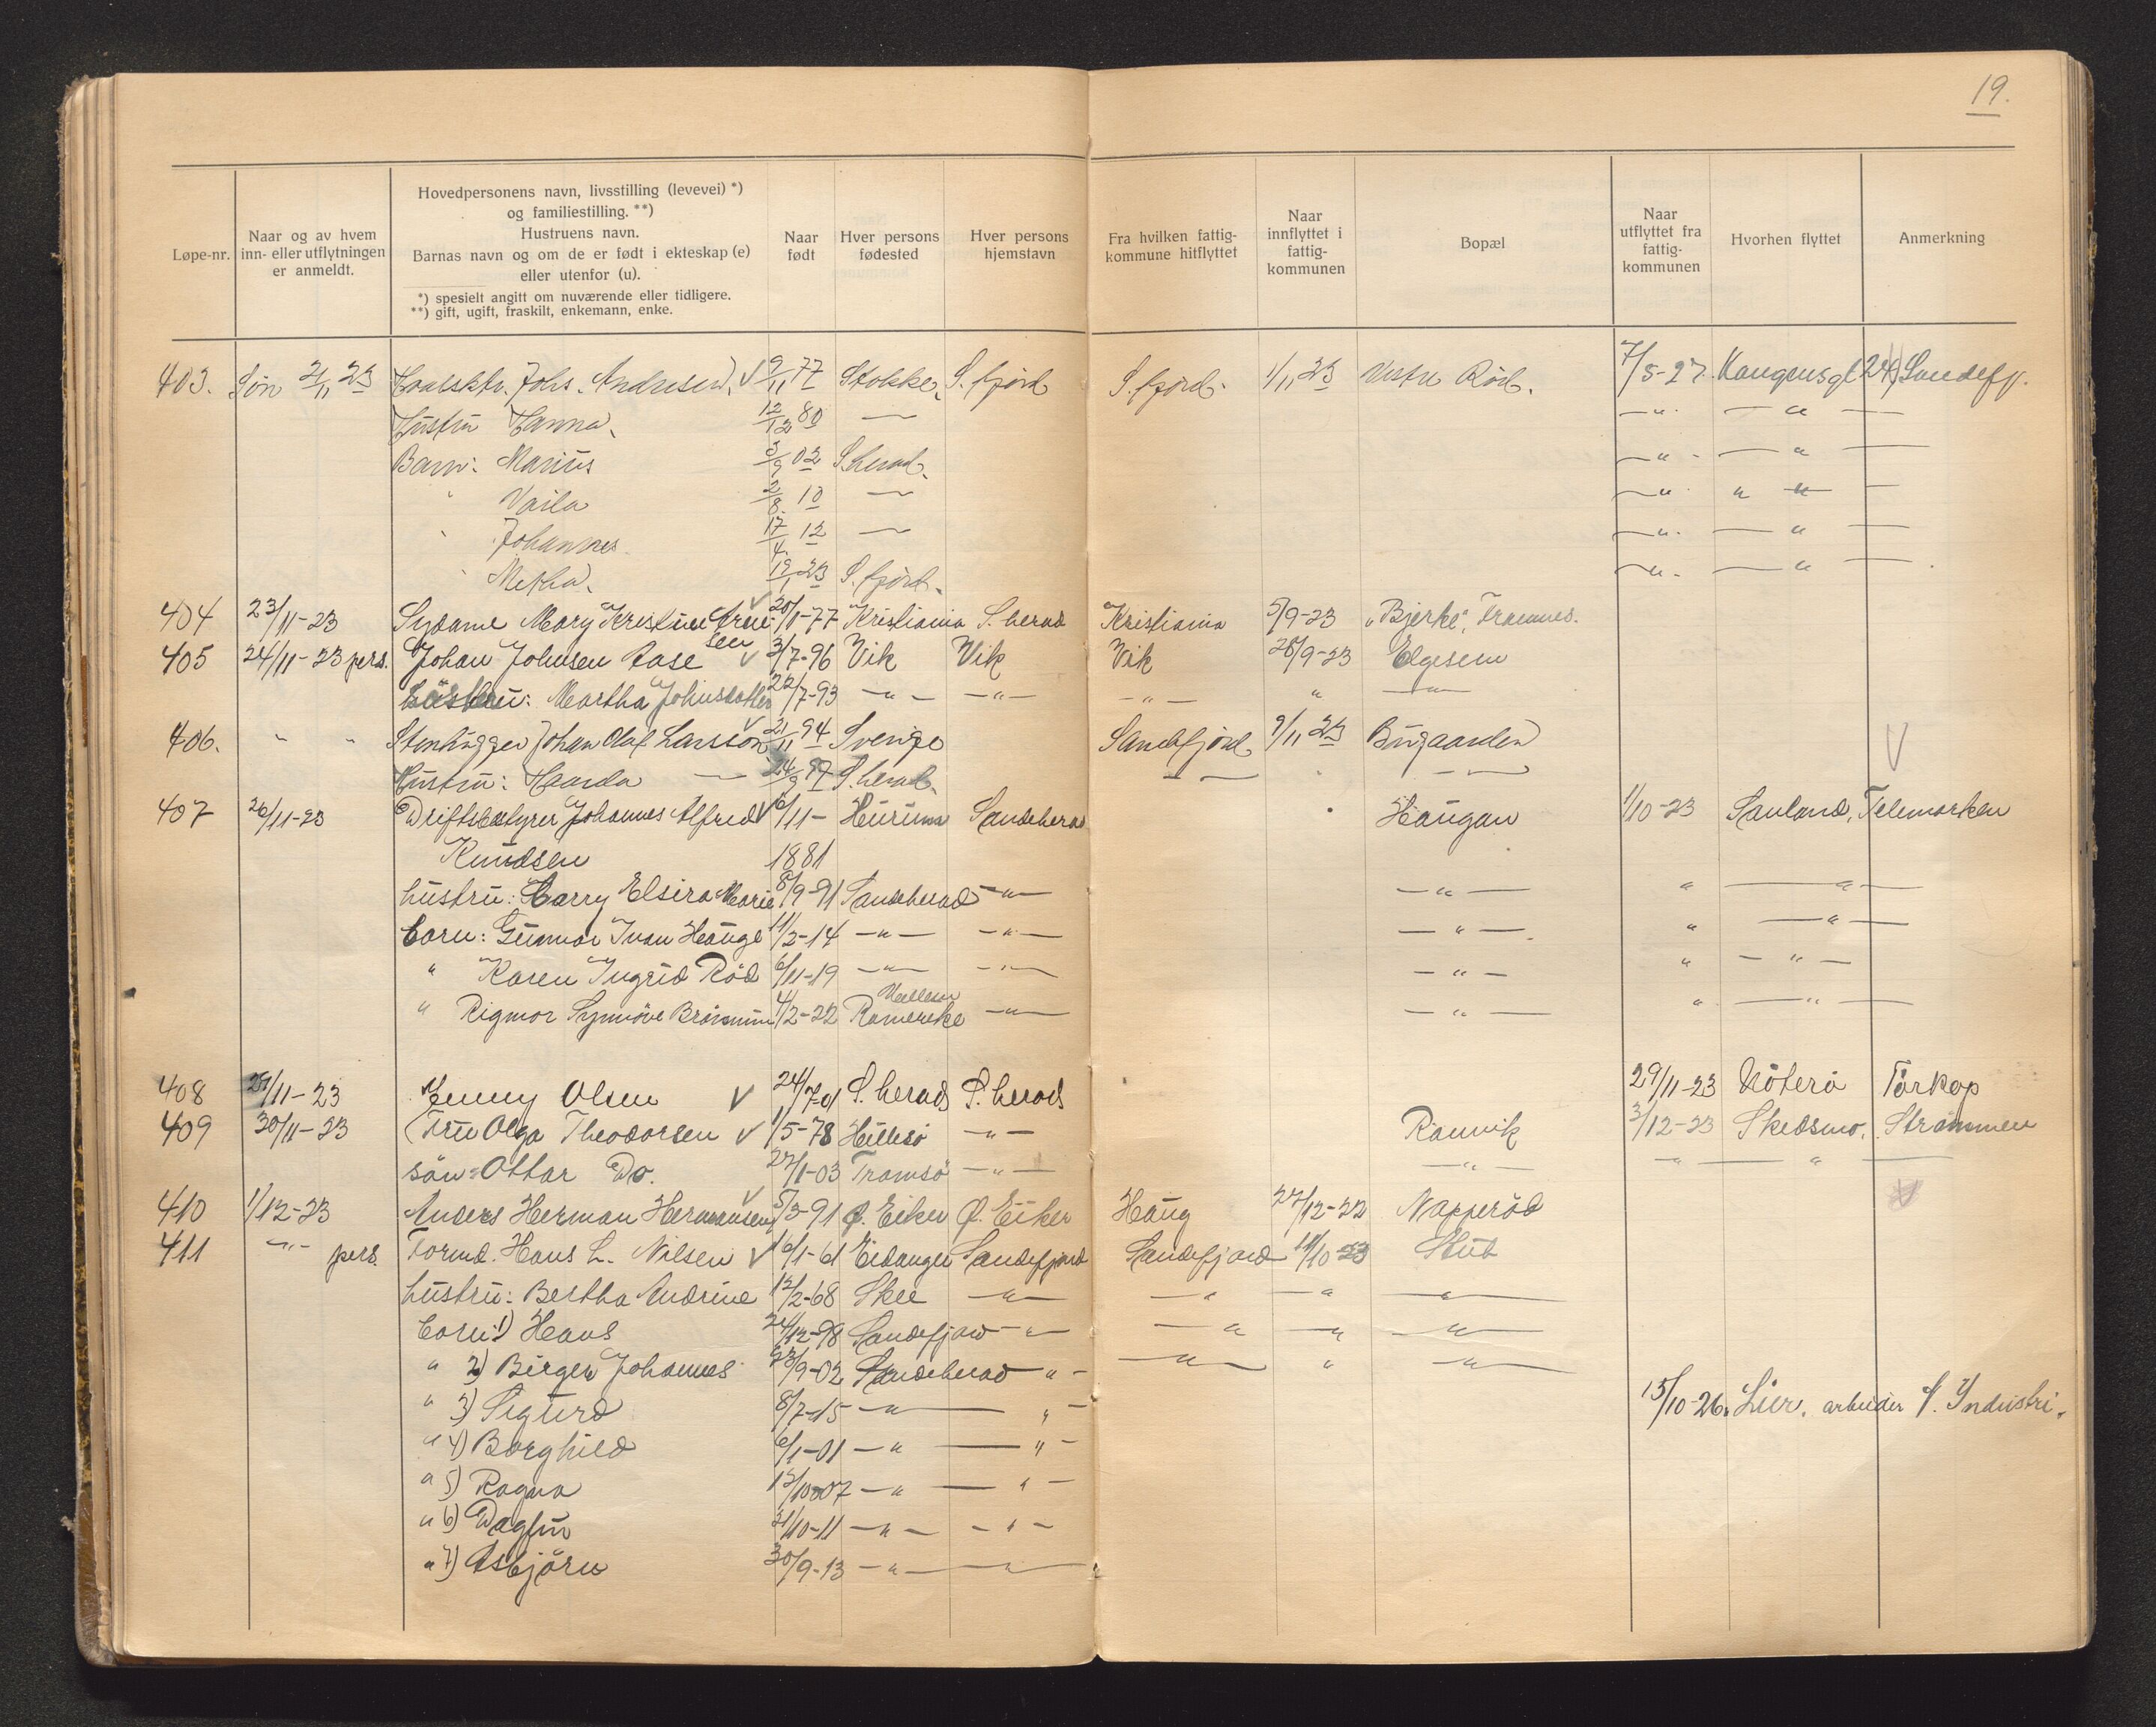 19.
Løpe-nr.
Naar og av hvem inn- eller utflytningen er anmeldt.
Hovedpersonens navn, livsstilling (levevei) *)
og familiestilling. **)
Hustruens navn.
Barnas navn og om de er født i ekteskap (e)
eller utenfor (u).
*) spesielt angitt om nuværende eller tidligere.
**) gift, ugift, fraskilt, enkemann, enke.
Naar født
Hver persons fødested
Hver persons hjemstavn
Fra hvilken fattig-kommune hitflyttet
Naar innflyttet i fattig-kommunen
Bopæl
Naar utflyttet fra fattig-kommunen
Hvorhen flyttet
Anmerkning
403. 2/11 23 Johs. Andresen. √ 9/11 77 Stokke. S. fjord S. fjord. 1/11 23 Vestre Röd. 7/5-27. Kongensgt 24 Sandefj.
Hustru Hanna. 12/12 80 — -"- — " —
Barn: Marius 3/9 02 S.herad. -"- — " —
" Vaila 2/8. 10 — -"- " " —
" Johannes. 17/4. 12 — -"- — " —
" Metha. 19/1 23 S. fjord. -"- — " —
404 23/11-23 Sydame Mary Kristine Arne- 20/1-77 Kristiania S. herad Kristiania 5/9-23 "Bjerke", Framnes.
sen
405 24/11-23 pers. Johan Johnsen Aase √ 3/7-96 Vik Vik Vik 28/9-23 Elgesem
hustru: Martha Johnsdatter 22/7-93 -"- -"- -"- " —"—
406. " " Stenhugger Johan Olaf Larsson 21/11 94 Sverige Sandefjord 9/11 23 Bugaarden √
Hustru: — 24/9 97 S.herad. — " —"—
407 26/11-23 Driftsbestyrer Johannes Alfred √ 6/11- Hurum Sandeherad Haugan 1/10-23 Sauland, Telemarken
Knudsen 1881
hustru: Harry Elsira Marie 8/9-91 Sandeherad —"— —"— " —"—
barn: Gunnar Ivan Hauge 11/2-14 —"— —"— —"— " —"—
" Karen Ingrid Röd 6/11-19 —"— —"— —"— " —"—
" Rigmor Synnöve 4/2-22 —"— —"— " —"—
408 29/11-23 Jenny Olsen √ 24/7-01 S. herad S. herad 29/11-23 Nöterö Torkop
409 30/11-23 Fru Olga Theodorsen √ 1/5-78 Hillesö —"— Ranvik 3/12-23 Skedsmo. Strömmen
sön: Ottar Do. 27/1-03 Tromsö —"— —"— —"— "
410 1/12-23 Anders Herman Hermansen √ 5/3-91 Ø. Eiker Ø. Eiker Haug 27/12-22 Napperöd √
411 -"- pers. Formd. Hans L. Nilsen √ 16/1-61 Eidanger Sandefjord Sandefjord 14/10-23 Stub
hustru: Bertha Andrine 12/2-68 Skee —"— —"— —"— —"—
barn: 1) Hans 24/12-98 Sandefjord —"— —"— —"— —"—
" 2) Birger Johannes 23/9-02 Sandeherad —"— —"— " —"—
" 3) Sigurd 8/7-15 —"— —"— 15/10-26. Lier. arbeider i. Industri.
" 4) Borghild 6/1-01 —"— —"—
" 5) Ragna 12/10-07 —"— —"—
" 6) Dagfin 31/10-11 —"— —"—
" 7) Asbjörn 30/9-13 —"— —"—